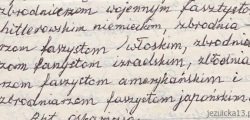 zbrodniarzom wojennym faszystom
hitlerowskim niemieckim, zbrodnia
rzom faszystom włoskim, zbrodnia
rzom faszystom izraelskim, zbrodnia
rzom faszystom amerykańskim i
zbrodniarzom faszystom japońskim.
Akt oskarżenia
jezuicka13